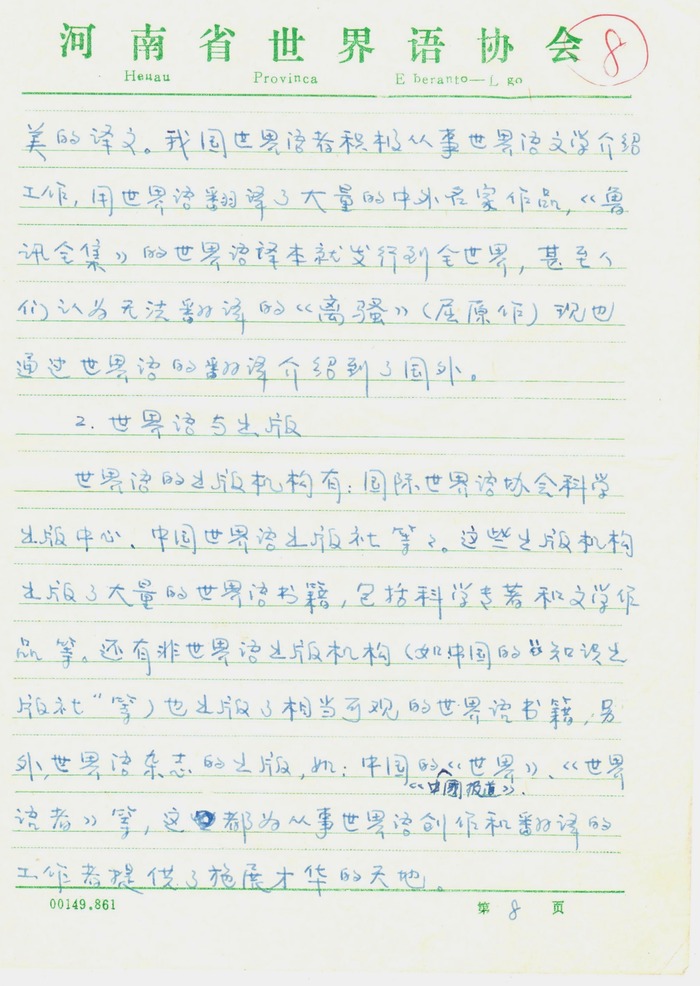 河南省世界语协会
8
Henau Provinca E beranto—L go
美的译文。我国世界语者积极从事世界语文学介绍
工作,用世界语翻译了大量的中外名家作品,《鲁
讯全集》的世界语译本就发行到全世界,甚至人
们认为无法翻译的《离骚》(屈原作)现也
通过世界语的翻译介绍到了国外。
2. 世界语与出版
世界语的出版机构有:国际世界语协会科学
出版中心、中国世界语出版社等等。这些出版机构
出版了大量的世界语书籍,包括科学专著和文学作
品等。还有非世界语出版机构(如中国的“知识出
版社“等)也出版了相当可观的世界语书籍,另
外,世界语杂志的出版,如:中国的《世界》、《世界
《中國报道》、
语者》等,这都为从事世界语创作和翻译的
工作者提供了施展才华的天地。
00149.861 第 8 页